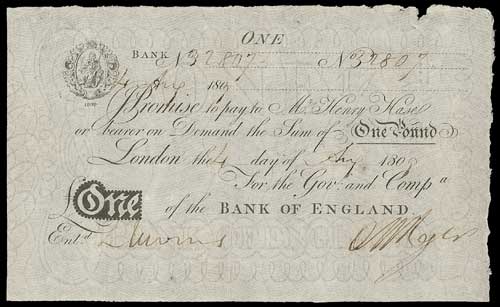 ONE
BANK No 32807 No 32807
4 Aug 1803
I Promise to pay to Mr. Henry Hase
or bearer on Demand the Sum of One Pound
London the 4 day of Aug 1803
For the Govr. and Compa.
£One of the BANK OF ENGLAND
Entd.